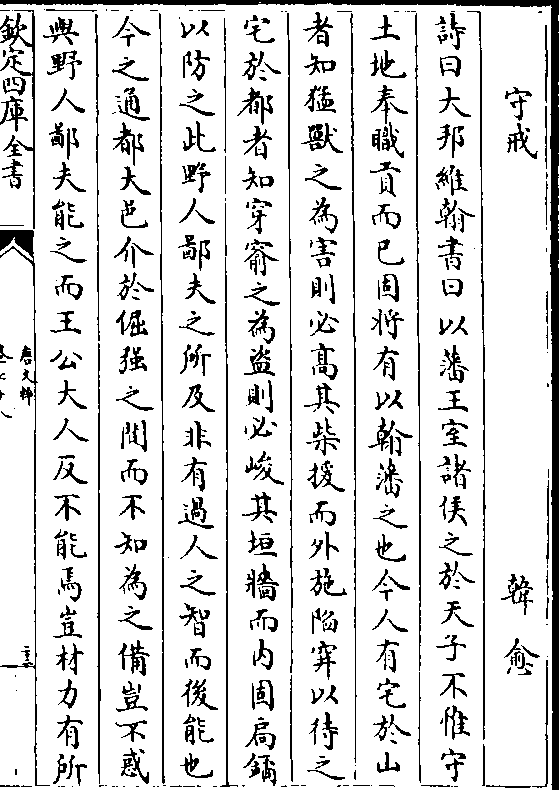 守戒　韓愈
詩曰大邦維翰書曰以藩王室諸侯之於天子不惟守
土地奉職貢而已固將有以翰藩之也今人有宅於山
者知猛獸之為害則必髙其柴援而外施陷穽以待之
宅於都者知穿窬之為盜則必峻其垣牆而内固扃鐍
以防之此野人鄙夫之所及非有過人之智而後能也
今之通都大邑介於倔强之間而不知為之備豈不惑
與野人鄙夫能之而王公大人反不能焉豈材力有所
欽定四庫全書
唐文粹